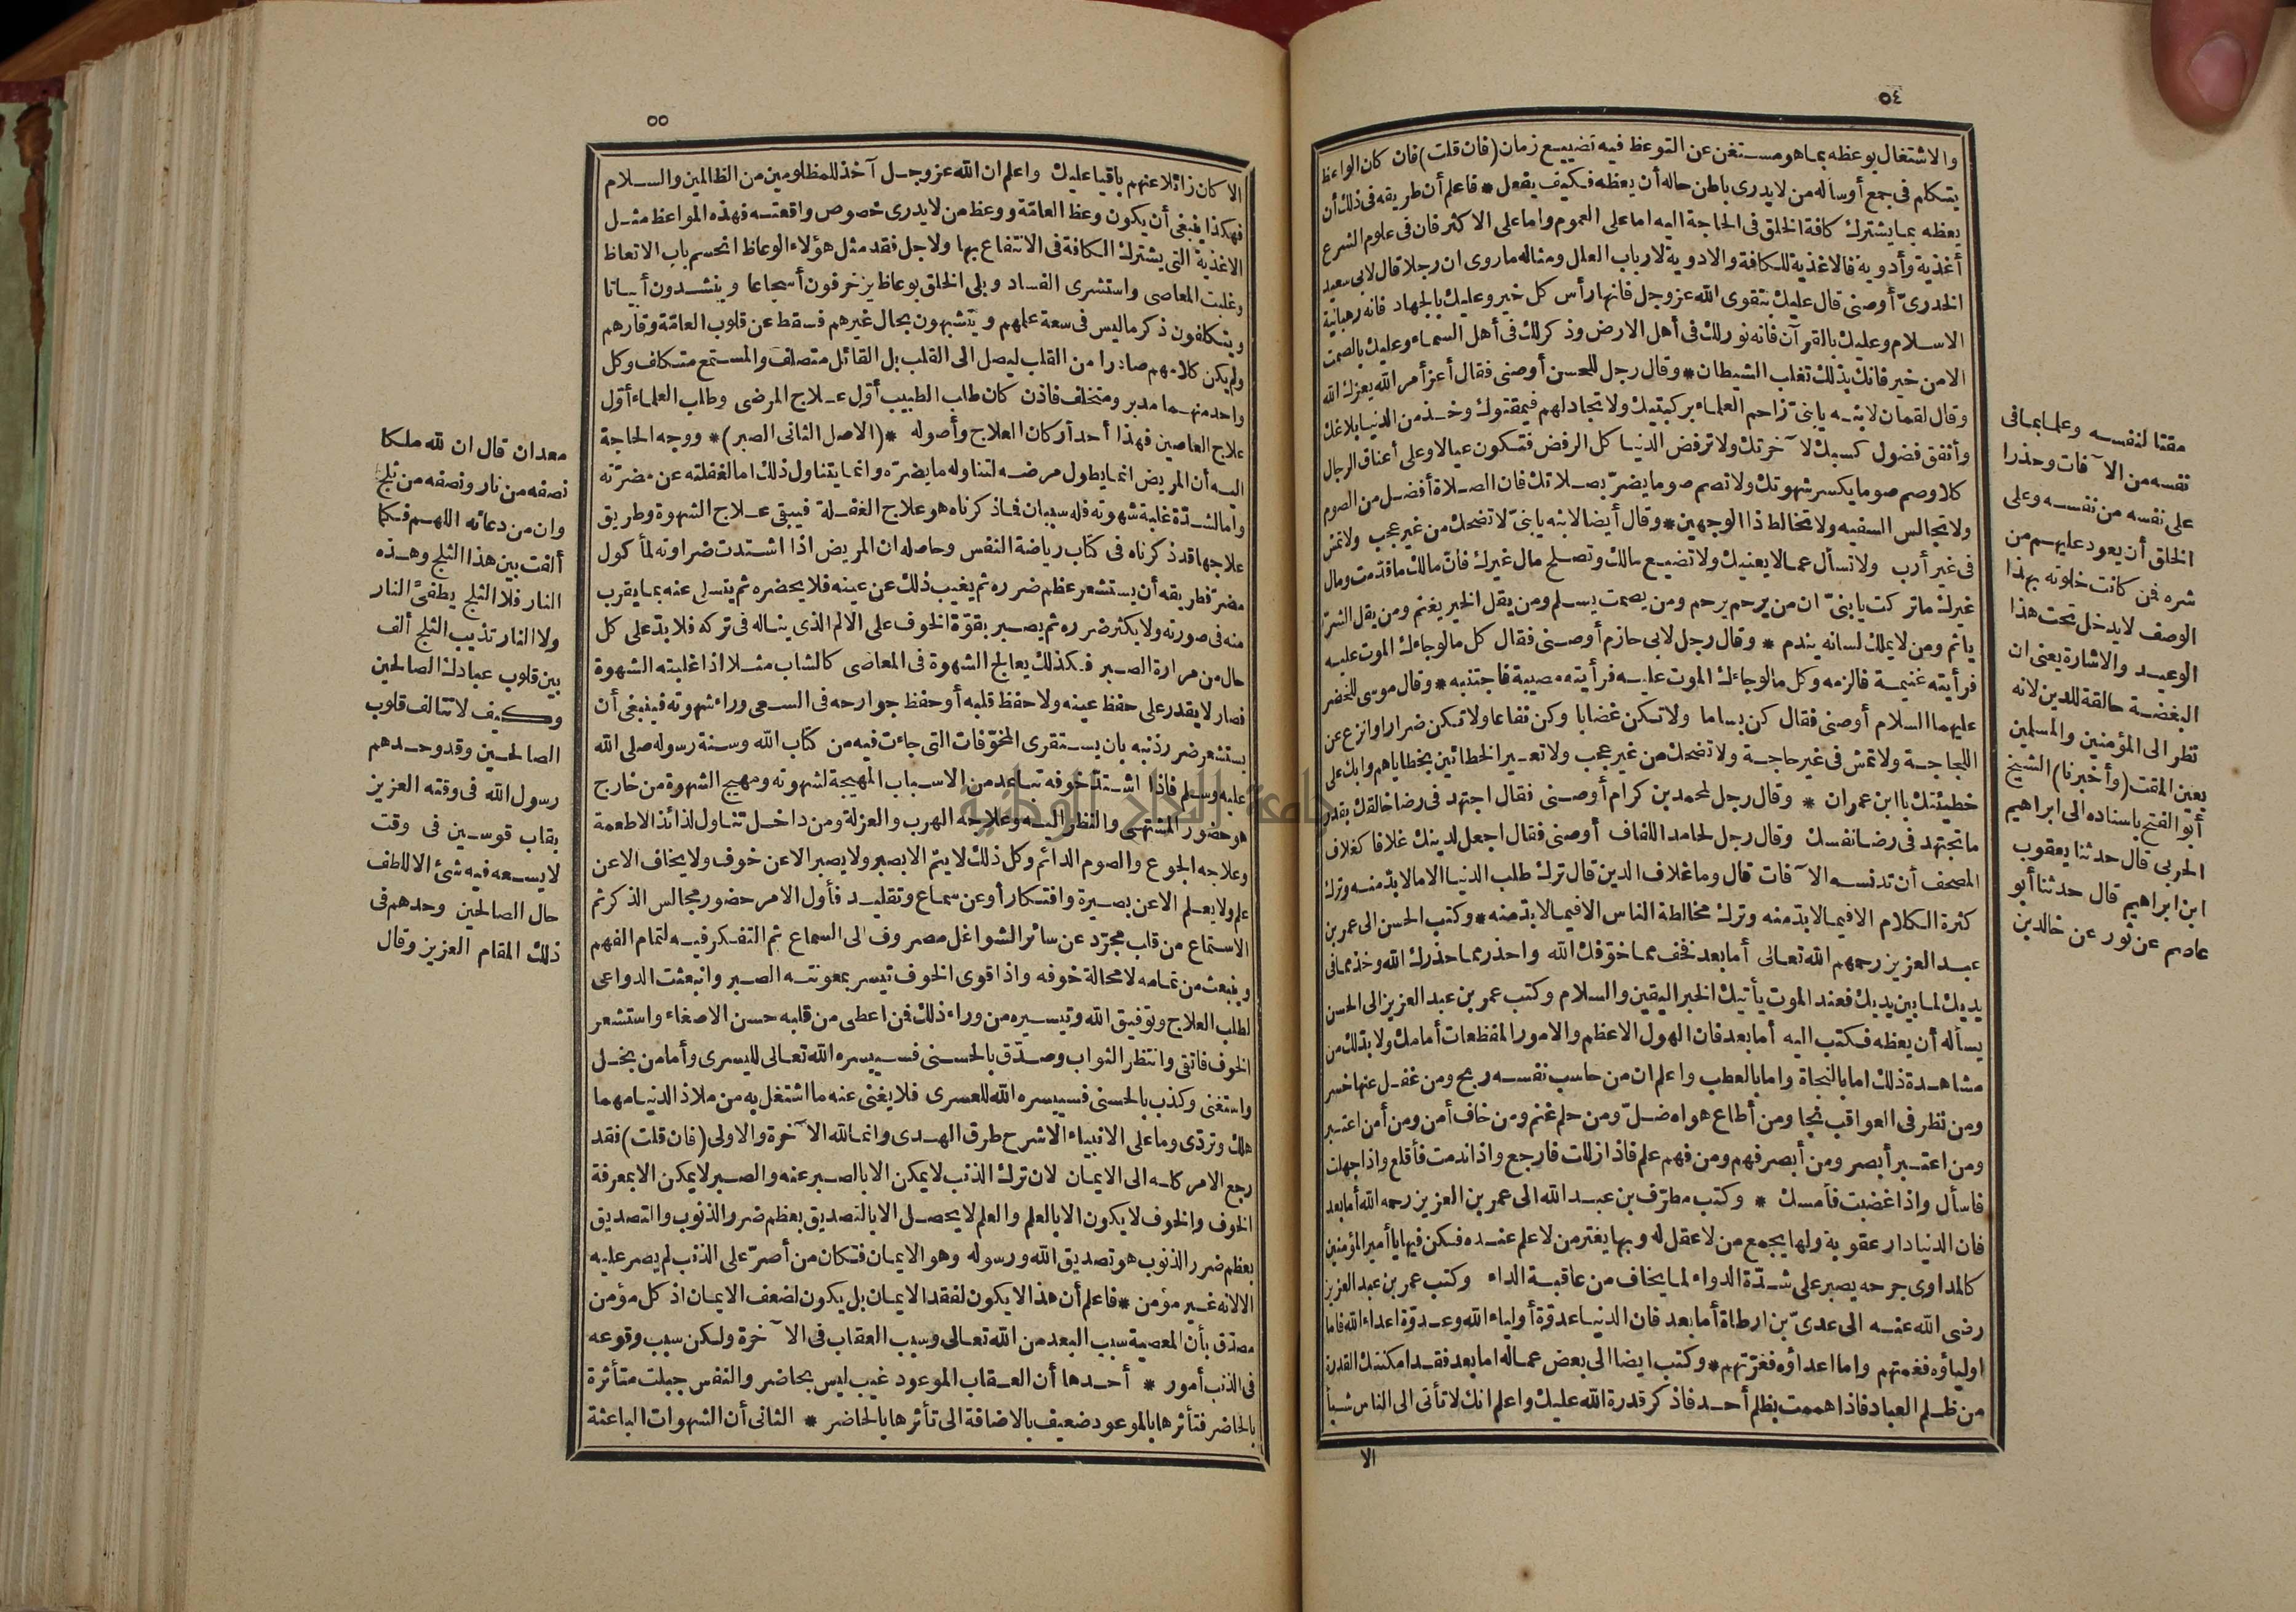 ٥٤
والاشتغال بوعظه بما هو مستغن عن التوعظ فيه تضييع زمان (فان قلت) فان كان الواعظ
يتكلم فى جمع أو سأله من لا يدرى باطن حاله أن يعظه فكيف يفعل * فاعلم أن طريقه فى ذلك أن
يعظه بما يشترك كافة الخلق فى الحاجة اليه اما على العموم واما على الاكثر فان فى علوم الشرع
أغذية وأدوية فالاغذية للكافة والادوية لارباب العلل ومثاله ماروى ان رجلا قال لابى سعيد
الخدرىّ أوصنى قال عليك بتقوى الله عز وجل فانها رأس كل خير وعليك بالجهاد فانه رهبانية
الاسلام وعليك بالقرآن فانه نور لك فى أهل الارض وذكر لك فى أهل السماء وعليك بالصمت
الا من خير فانك بذلك تغلب الشيطان * وقال رجل للحسن أوصنى فقال أعز أمر الله يعزك الله
وقال لقمان لابنه يابنىّ زاحم العلماء بركبتيك ولا تجادلهم فيمقتوك وخذ من الدنيا بلاغك
وأنفق فضول كسبك لآخرتك ولا ترفض الدنيا كل الرفض فتكون عيالا وعلى أعناق الرجال
كلا وصم صوما يكسر شهوتك ولا تصم صوما يضرّ بصلاتك فان الصلاة أفضل من الصوم
ولا تجالس السفيه ولا تخالط ذا الوجهين * وقال أيضا لابنه يابنىّ لا تضحك من غير عجب ولا تمش
فى غير أرب ولا تسأل عما لا يعنيك ولا تضيع مالك وتصلح مال غيرك فان مالك ماقدّمت ومال
غيرك ماتركت يابنىّ ان من يرحم يرحم ومن يصمت يسلم ومن يقل الخير يغنم ومن يقل الشرّ
يأثم ومن لا يملك لسانه يندم * وقال رجل لابى حازم أوصنى فقال كل مالوجاءك الموت عليه
فرأيته غنيمة فالزمه وكل مالوجاءك الموت عليه فرأيته مصيبة فاجتنبه * وقال موسى للخضر
عليهما السلام أوصنى فقال كن بساما ولا تكن غضابا وكن نفاعا ولا تكن ضرارا وانزع عن
اللجاجة ولا تمش فى غير حاجة ولا تضحك من غير عجب ولا تعير الخطائين بخطاياهم وابك على
خطيئتك يا ابن عمران * وقال رجل لمحمد بن كرام أوصنى فقال اجتهد فى رضا خالقك بقدر
ماتجتهد فى رضا نفسك وقال رجل لحامد اللفاف أوصنى فقال اجعل لدينك غلافا كغلاف
المصحف أن تدنسه الآفات قال وما غلاف الدين قال ترك طلب الدنيا الا مالا بدّ منه وترك
كثرة الكلام الا فيما لا بدّ منه وترك مخالطة الناس الا فيما لا بدّ منه * وكتب الحسن الى عمر بن
عبد العزيز رحمهم الله تعالى أما بعد فخف مما خوّفك الله واحذر مما حذرك الله وخذ مما فى
يديك لما بين يديك فعند الموت يأتيك الخبر اليقين والسلام وكتب عمر بن عبد العزيز الى الحسن
يسأله أن يعظه فكتب اليه أما بعد فان الهول الاعظم والامور المفظعات أمامك ولا بدّ لك من
مشاهدة ذلك اما بالنجاة واما بالعطب واعلم ان من حاسب نفسه ربح ومن غفل عنها خسر
ومن نظر فى العواقب نجا ومن أطاع هواه ضلّ ومن حلم غنم ومن خاف أمن ومن أمن اعتبر
ومن اعتبر أبصر ومن أبصر فهم ومن فهم علم فاذا زللت فارجع واذا ندمت فأقلع واذا جهلت
فاسأل واذا غضبت فأمسك * وكتب مطرّف بن عبد الله الى عمر بن العزيز رحمه الله أما بعد
فان الدنيا دار عقوبة ولها يجمع من لا عقل له وبها يغتر من لا علم عنده فكن فيها يا أمير المؤمنين
كالمداوى جرحه يصبر على شدّة الدواء لما يخاف من عاقبة الداء وكتب عمر بن عبد العزيز
رضى الله عنه الى عدىّ بن ارطاة أما بعد فان الدنيا عدوّة أولياء الله وعدوّة اعداء الله فاما
اولياؤه فغمتهم واما اعداؤه فغرّتهم * وكتب ايضا الى بعض عماله اما بعد فقد امكنتك القدرة
من ظلم العباد فاذا هممت بظلم أحد فاذكر قدرة الله عليك واعلم انك لا تأتى الى الناس شيأ
الا
مقتا لنفسه وعلما بما فى
نفسه من الآفات وحذرا
على نفسه من نفسه وعلى
الخلق أن يعود عليهم من
شره فمن كانت خلوته بهذا
الوصف لا يدخل تحت هذا
الوعيد والاشارة يعنى ان
البغضة حالقة للدين لانه
نظر الى المؤمنين والمسلمين
بعين المقت (وأخبرنا) الشيخ
أبو الفتح باسناده الى ابراهيم
الحربى قال حدثنا يعقوب
ابن ابراهيم قال حدثنا أبو
عاصم عن ثور عن خالد بن
٥٥
الا كان زائلا عنهم باقيا عليك واعلم ان الله عز وجل آخذ للمظلومين من الظالمين والسلام
فهكذا ينبغى أن يكون وعظ العامّة ووعظ من لا يدرى خصوص واقعته فهذه المواعظ مثل
الاغذية التى يشترك الكافة فى الانتفاع بها ولاجل فقد مثل هؤلاء الوعاظ انحسم باب الاتعاظ
وغلبت المعاصى واستشرى الفساد وبلى الخلق بوعاظ يزخرفون أسجاعا وينشدون أبياتا
ويتكلفون ذكر ماليس فى سعة علمهم ويتشبهون بحال غيرهم فسقط عن قلوب العامّة وقارهم
ولم يكن كلامهم صادرا من القلب ليصل الى القلب بل القائل متصلف والمستمع متكلف وكل
واحد منهما مدبر ومتخلف فاذن كان طلب الطبيب أوّل علاج المرضى وطلب العلماء أوّل
علاج العاصين فهذا أحد أركان العلاج وأصوله *(الاصل الثانى الصبر)* ووجه الحاجة
اليه أن المريض انما يطول مرضه لتناوله ما يضرّه وانما يتناول ذلك اما لغفلته عن مضرّته
واما لشدّة غلبة شهوته فله سببان فما ذكرناه هو علاج الغفلة فيبقى علاج الشهوة وطريق
علاجها قد ذكرناه فى كتاب رياضة النفس وحاصله ان المريض اذا اشتدت ضراوته لمأكول
مضرّ فطريقه أن يستشعر عظم ضرره ثم يغيب ذلك عن عينه فلا يحضره ثم يتسلى عنه بما يقرب
منه فى صورته ولا يكثر ضرره ثم يصبر بقوّة الخوف على الالم الذى يناله فى تركه فلا بدّ على كل
حال من مرارة الصبر فكذلك يعالج الشهوة فى المعاصى كالشاب مثلا اذا غلبته الشهوة
فصار لا يقدر على حفظ عينه ولا حفظ قلبه أو حفظ جوارحه فى السعى وراء شهوته فينبغى أن
يستشعر ضرر ذنبه بان يستقرى المخوّفات التى جاءت فيه من كتاب الله وسنة رسوله صلى الله
عليه وسلم فاذا اشتدّ خوفه تباعد من الاسباب المهيجة لشهوته ومهيج الشهوة من خارج
هو حضور المشتهى والنظر اليه وعلاجه الهرب والعزلة ومن داخل تناول لذائذ الاطعمة
وعلاجه الجوع والصوم الدائم وكل ذلك لا يتم الا بصبر ولا يصبر الا عن خوف ولا يخاف الا عن
علم ولا يعلم الا عن بصيرة وافتكار أو عن سماع وتقليد فأول الامر حضور مجالس الذكر ثم
الاستماع من قلب مجرّد عن سائر الشواغل مصروف الى السماع ثم التفكر فيه لتمام الفهم
وينبعث من تمامه لا محالة خوفه واذا قوى الخوف تيسر بمعونته الصبر وانبعثت الدواعى
لطلب العلاج وتوفيق الله وتيسيره من وراء ذلك فمن اعطى من قلبه حسن الاصغاء واستشعر
الخوف فاتقى وانتظر الثواب وصدّق بالحسنى فسييسره الله تعالى لليسرى وأما من بخل
واستغنى وكذب بالحسنى فسييسره الله للعسرى فلا يغنى عنه ما اشتغل به من ملاذ الدنيا مهما
هلك وتردّى وما على الانبياء الا شرح طرق الهدى وانما لله الآخرة والاولى (فان قلت) فقد
رجع الامر كله الى الايمان لان ترك الذنب لا يمكن الا بالصبر عنه والصبر لا يمكن الا بمعرفة
الخوف والخوف لا يكون الا بالعلم والعلم لا يحصل الا بالتصديق بعظم ضرر الذنوب والتصديق
بعظم ضرر الذنوب هو تصديق الله ورسوله وهو الايمان فكان من أصرّ على الذنب لم يصر عليه
الا لانه غير مؤمن * فاعلم أن هذا لا يكون لفقد الايمان بل يكون لضعف الايمان اذ كل مؤمن
مصدّق بأن المعصية سبب البعد من الله تعالى وسبب العقاب فى الآخرة ولكن سبب وقوعه
فى الذنب أمور * أحدها أن العقاب الموعود غيب ليس بحاضر والنفس جبلت متأثرة
بالحاضر فتأثرها بالموعود ضعيف بالاضافة الى تأثرها بالحاضر * الثانى أن الشهوات الباعثة
معدان قال ان لله ملكا
نصفه من نار ونصفه من ثلج
وان من دعائه اللهم فكما
ألفت بين هذا الثلج وهذه
النار فلا الثلج يطفئ النار
ولا النار تذيب الثلج ألف
بين قلوب عبادك الصالحين
وكيف لا تتالف قلوب
الصالحين وقد وحدهم
رسول الله فى وقته العزيز
بقاب قوسين فى وقت
لا يسعه فيه شئ الا للطف
حال الصالحين وحدهم فى
ذلك المقام العزيز وقال
جامعة النجاح الوطنية